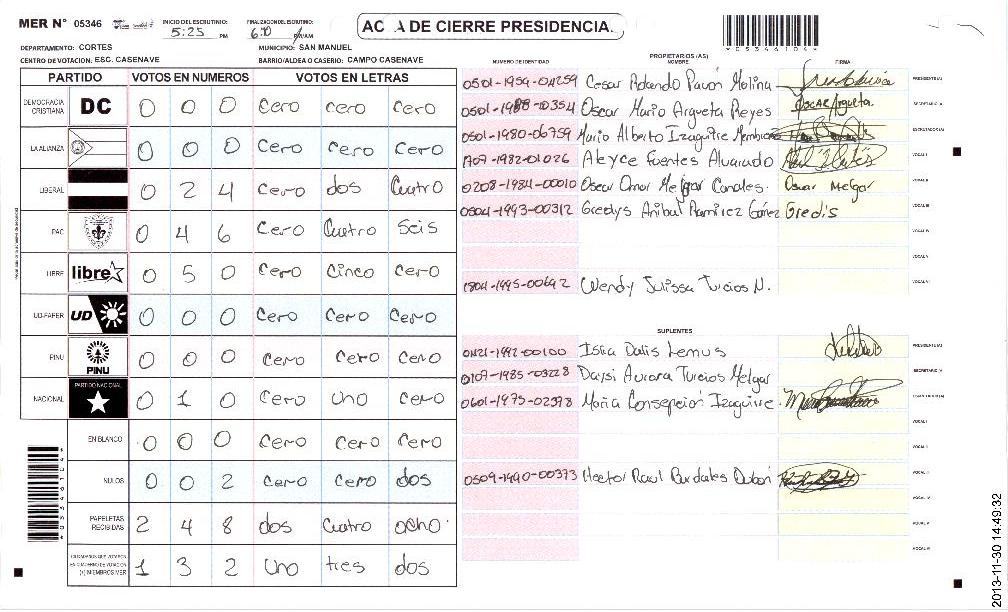 MER N° 05346
INICIO DEL ESCRUTINIO: 5:25 PM
FINALIZACION DEL ESCRUTINIO: PM/AM
ACTA DE CIERRE PRESIDENCIA.
05346104
DEPARTAMENTO: CORTES
MUNICIPIO: SAN MANUEL
CENTRO DE VOTACION: ESC. CASENAVE
BARRIO/ALDEA O CASERIO: CAMPO CASENAVE
PARTIDO VOTOS EN NUMEROS VOTOS EN LETRAS
DEMOCRACIA CRISTIANA DC 0 0 0 cero cero cero
LA ALIANZA 0 0 0 Cero Cero Cero
LIBERAL 0 2 4 Cero dos Cuatro
PAC 0 4 6 Cero Cuatro Seis
LIBRE libre 0 5 0 Cero Cinco Cero
UD-FAPER UD 0 0 0 Cero Cero Cero
PINU PINU 0 0 0 Cero Cero Cero
NACIONAL PARTIDO NACIONAL 0 1 0 Cero uno Cero
EN BLANCO 0 0 0 Cero Cero Cero
NULOS 0 0 2 Cero Cero dos
PAPELETAS RECIBIDAS 2 4 8 dos Cuatro ocho
CIUDADANOS QUE VOTARON EN CUADERNO DE VOTACION (+) MIEMBROS MER 1 3 2 Uno tres dos
PROPIETARIOS (AS)
NUMERO DE IDENTIDAD NOMBRE FIRMA
0501-1959-04259 Cesar Rolando Pavon Molina PRESIDENTE(A)
0501-1988-03554 Oscar Mario Argueta Reyes Oscar Argueta SECRETARIO(A)
0501-1980-06759 Mario Alberto Izaguirre ESCRUTADOR(A)
1707-1982-01026 Aleyce Fuentes Alvarado VOCAL I
0208-1984-00010 Oscar Omar Melgar Canales. Oscar Melgar VOCAL II
0504-1993-00312 Gredys Anibal Ramirez Gómez Gredis VOCAL III
VOCAL IV
VOCAL V
1804-1995-00692 Wendy Julissa Turcios N. VOCAL VI
SUPLENTES
0421-1992-00100 Isira Dalis Lemus PRESIDENTE(A)
0107-1985-03228 Daysi Aurora Turcios Melgar SECRETARIO(A)
0601-1975-02598 Maria Consepcion Izaguirre. ESCRUTADOR(A)
VOCAL I
VOCAL II
0509-1990-00373 Hector Raul Bardales Dubon VOCAL III
VOCAL IV
VOCAL V
VOCAL VI
2013-11-30 14:49:32